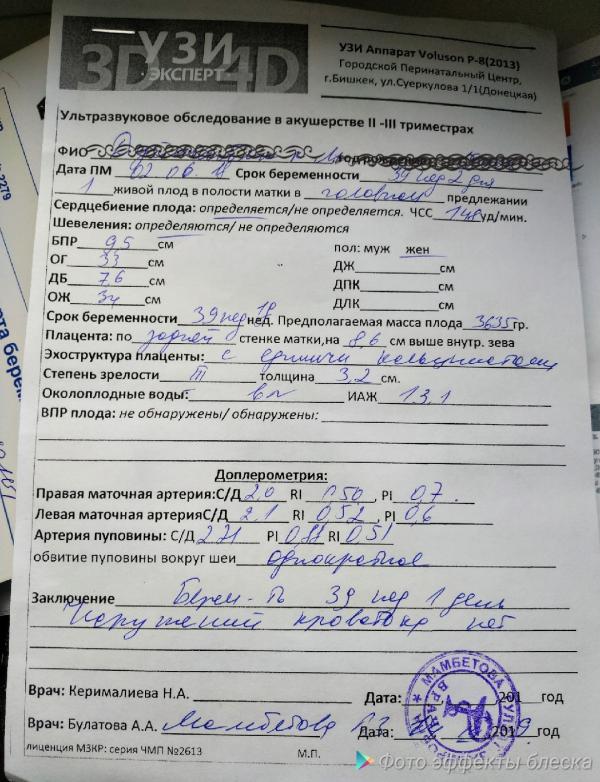 3D УЗИ 4D
ЭКСПЕРТ
УЗИ Аппарат Voluson P-8(2013)
Городской Перинатальный Центр,
г.Бишкек, ул.Суеркулова 1/1(Донецкая)
Ультразвуковое обследование в акушерстве II -III триместрах
ФИО
Дата ПМ Срок беременности 39 нед 2 дня
1 живой плод в полости матки в головном предлежании
Сердцебиение плода: определяется/не определяется. ЧСС 148 уд/мин.
Шевеления: определяются/ не определяются
БПР 9,5 см пол: муж жен
ОГ 33 см ДЖ см
ДБ 7,6 см ДПК см
ОЖ 34 см ДЛК см
Срок беременности 39 нед 1д нед. Предполагаемая масса плода 3635 гр.
Плацента: по задней стенке матки,на 8,6 см выше внутр. зева
Эхоструктура плаценты: с единичн кальцинатами
Степень зрелости III толщина 3,2 см.
Околоплодные воды: ИАЖ 13,1
ВПР плода: не обнаружены/ обнаружены:
Доплерометрия:
Правая маточная артерия:С/Д 2,0 RI 0,50 , PI 0,7
Левая маточная артерияС/Д 2,1 RI 0,52 , PI 0,6
Артерия пуповины: С/Д PI RI 0,51
обвитие пуповины вокруг шеи однократное
Заключение Берем-ть 39 нед 1 день
Нарушений кровотока нет
Врач: Керималиева Н.А. Дата: 201 год
Врач: Булатова А.А. Мамбетова Дата: 2019 год
лиценция МЗКР: серия ЧМП №2613 М.П.
МАМБЕТОВА
ВРАЧ
Фото эффекты блеска
2279